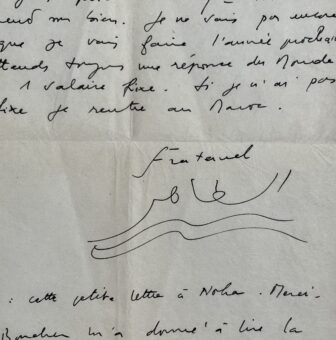 end mes biens. Je ne sais pas encore
que je vais faire l'année prochai
ttends toujours une réponse du Monde
1 salaire fixe. Si je n'ai pas
fixe je rentre au Maroc.
Fraternel
الطاهر
: cette petite lettre à Noha. Merci.
m'a donné à lire la